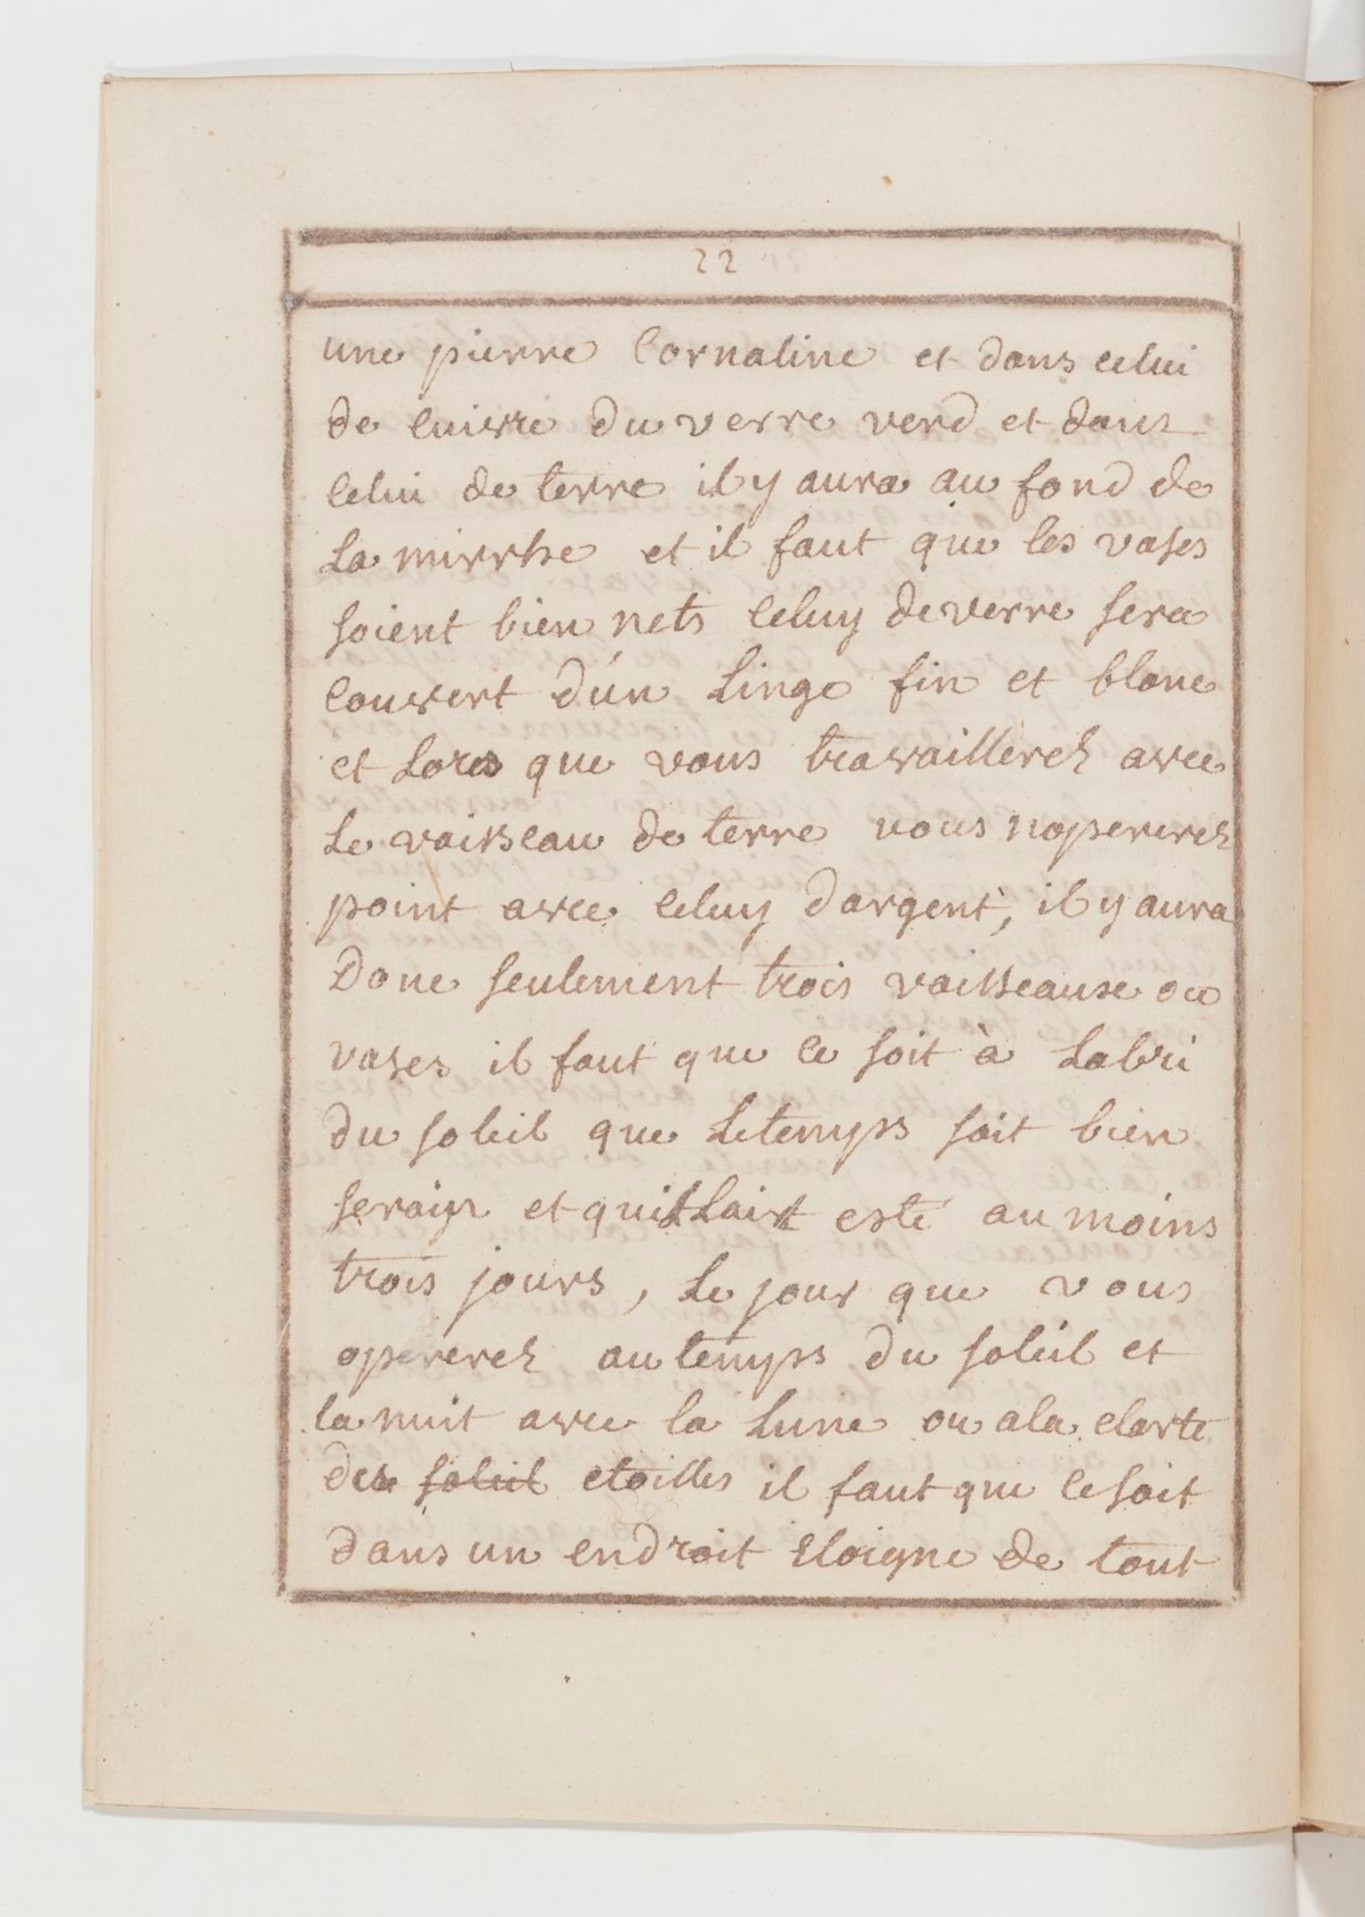 22
une pierre Cornaline et dans celui
de cuivre du verre verd et dans
celui de terre il y aura au fond de
La mirrhe et il faut que les vases
soient bien nets celuy de verre sera
couvert d'un Linge fin et blanc
et Lors que vous travaillerez avec
Le vaisseau de terre vous noperez
point avec celuy dargent, il y aura
Donc seulement trois vaisseaux ou
vases il faut que ce soit à Labri
du soleil que Letemps soit bien
serain et quil Lait esté au moins
trois jours, Le jour que vous
opererez au temps du soleil et
la nuit avec la Lune ou ala clarte
des soleil etoilles il faut que ce soit
Dans un endroit Eloigne de tout